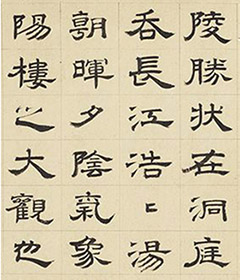 陵勝狀在洞庭
吞長江浩〻湯
朝暉夕陰氣象
陽樓之大觀也